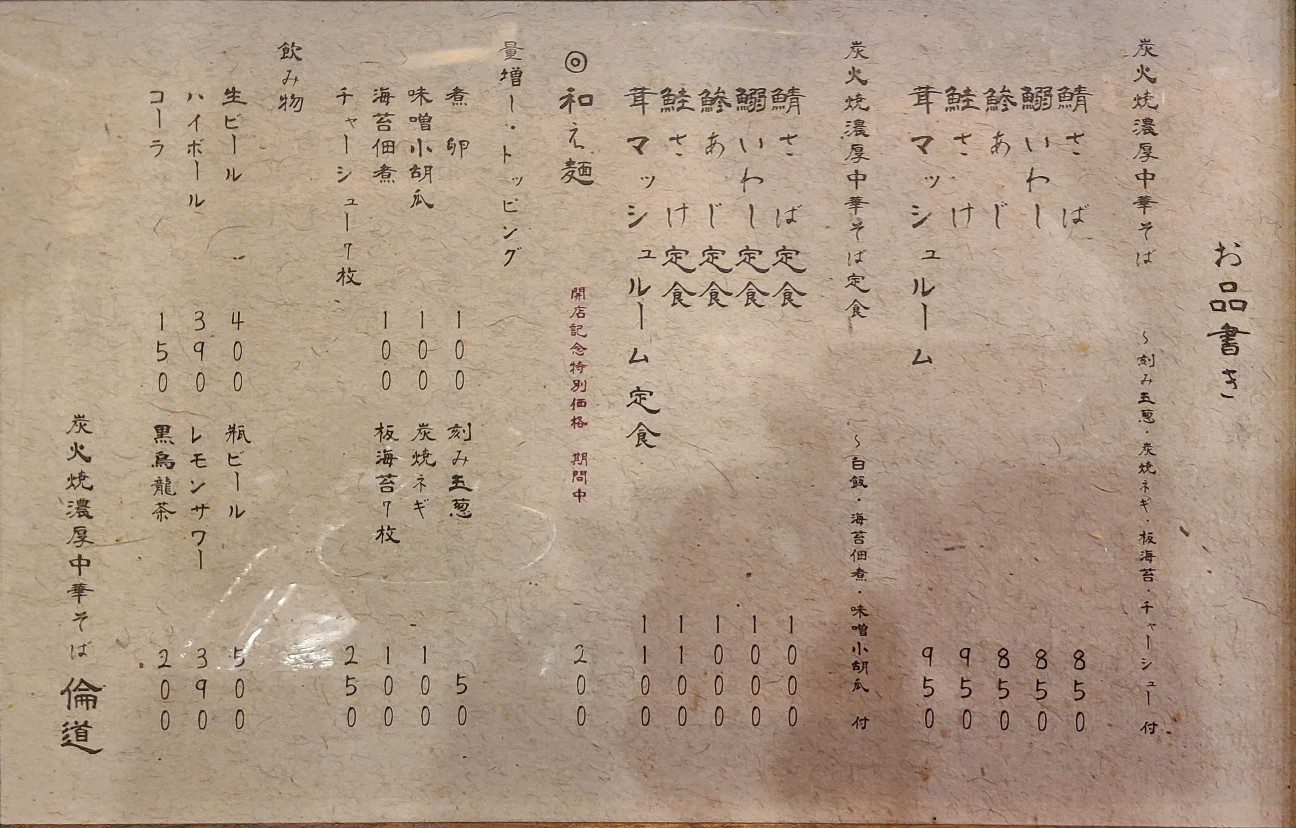 お品書き
炭火焼濃厚中華そば ~刻み玉葱・炭焼ネギ・板海苔・チャーシュー付
鯖さば 850
鰯いわし 850
鯵あじ 850
鮭さけ 950
茸マッシュルーム 950
炭火焼濃厚中華そば定食 ~白飯・海苔佃煮・味噌小胡瓜 付
鯖さば定食 1000
鰯いわし定食 1000
鯵あじ定食 1000
鮭さけ定食 1100
茸マッシュルーム定食 1100
◎和え麺 開店記念特別価格 期間中 200
量増し・トッピング
煮卵 100 刻み玉葱 50
味噌小胡瓜 100 炭焼ネギ 100
海苔佃煮 100 板海苔7枚 100
チャーシュー7枚 250
飲み物
生ビール 400 瓶ビール 500
ハイボール 390 レモンサワー 390
コーラ 150 黒烏龍茶 200
炭火焼濃厚中華そば 倫道